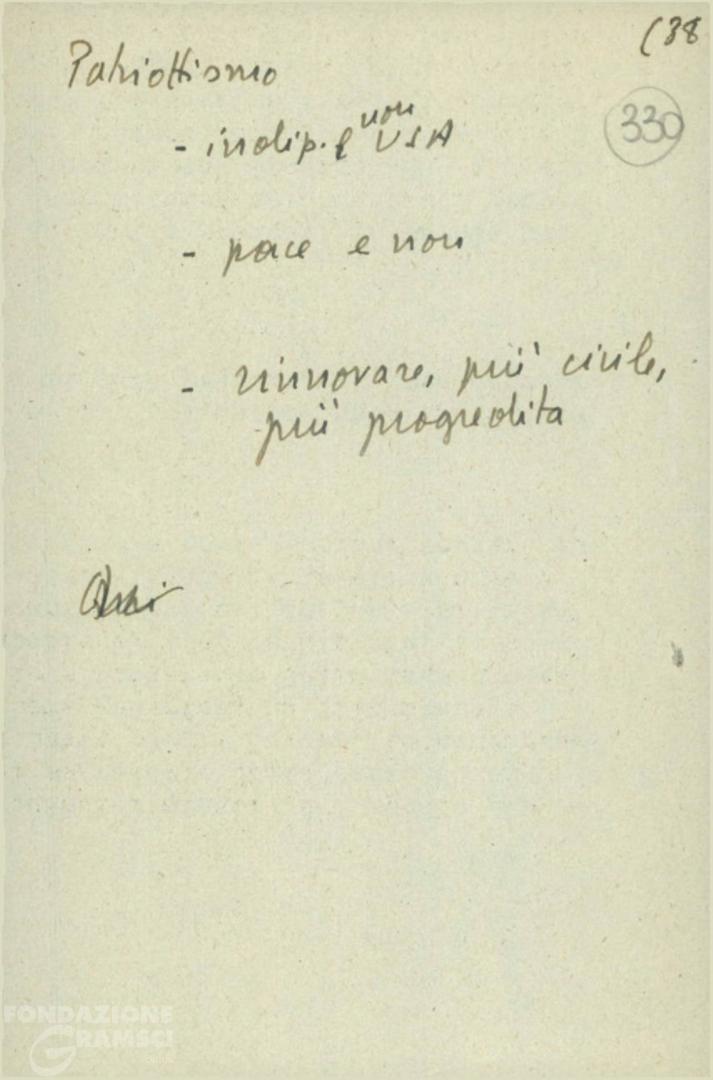 (38
Patriottismo
330
- indip. e non USA
- pace e non
- rinnovare, più civile,
più progredita
FONDAZIONE
GRAMSCI